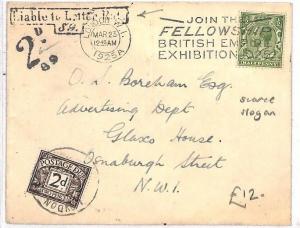 Liable to Letter Rate
JOIN THE
FELLOWSHIP
BRITISH EMPIRE
EXHIBITION
MAR 23
12.15AM
1925
HALFPENNY
2D
O. L. Boreham Esq.
Advertising Dept
Glaxo House.
Osnaburgh Street
N.W.1.
scarce
slogan
POSTAGE DUE
2d
LONDON
£12.